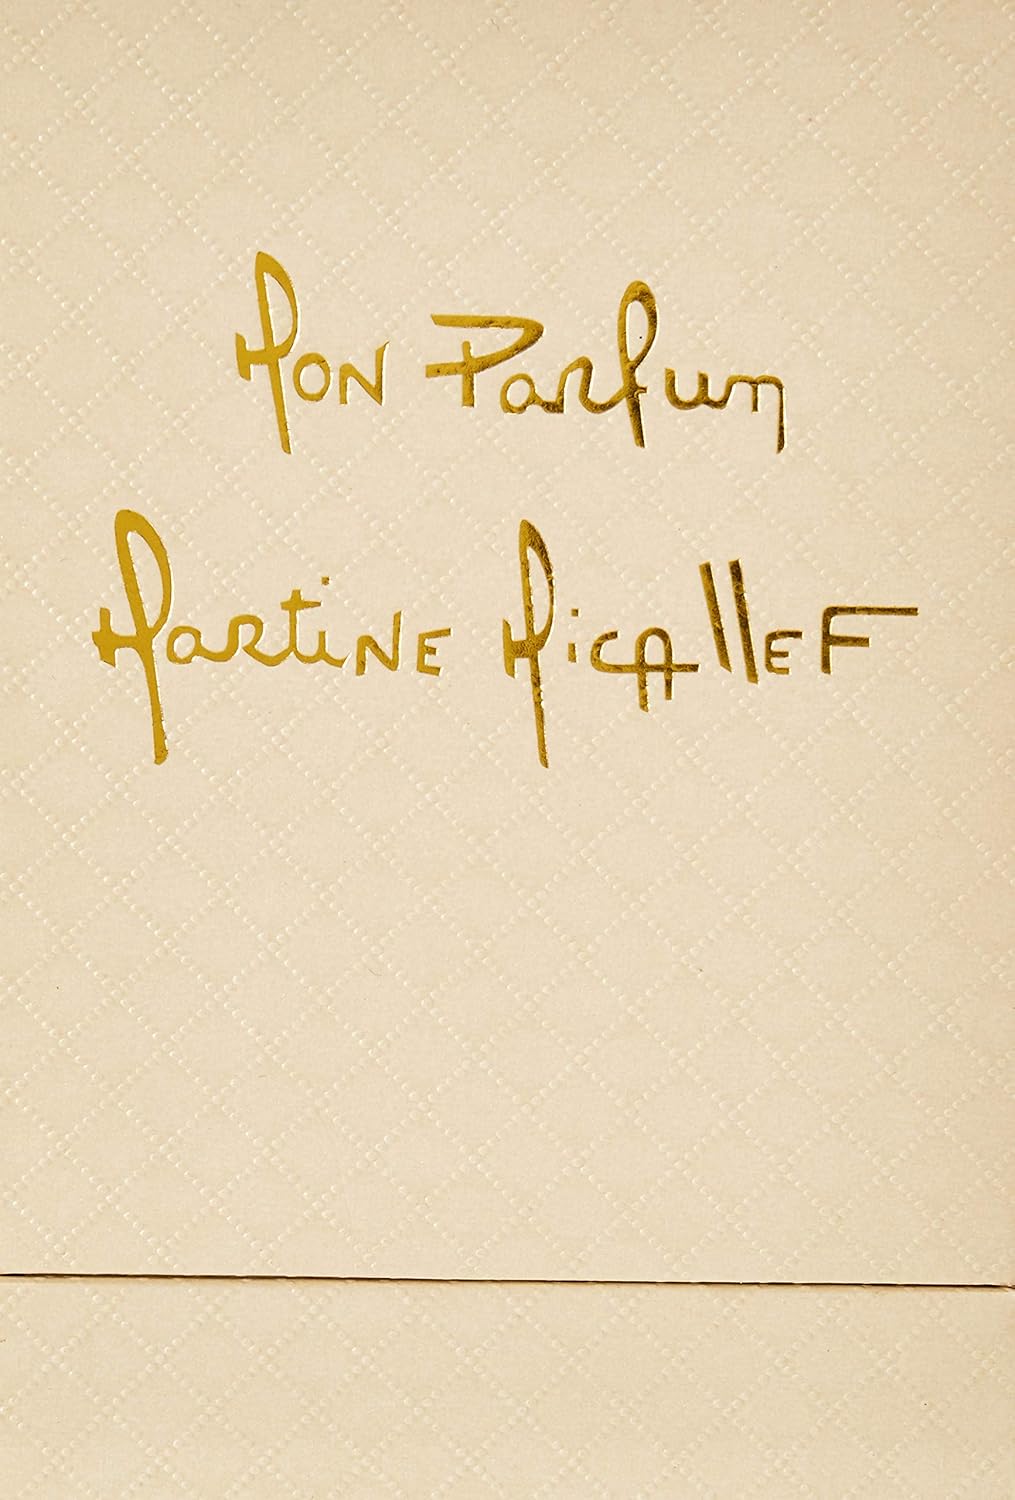 Mon Parfum
Martine Micallef